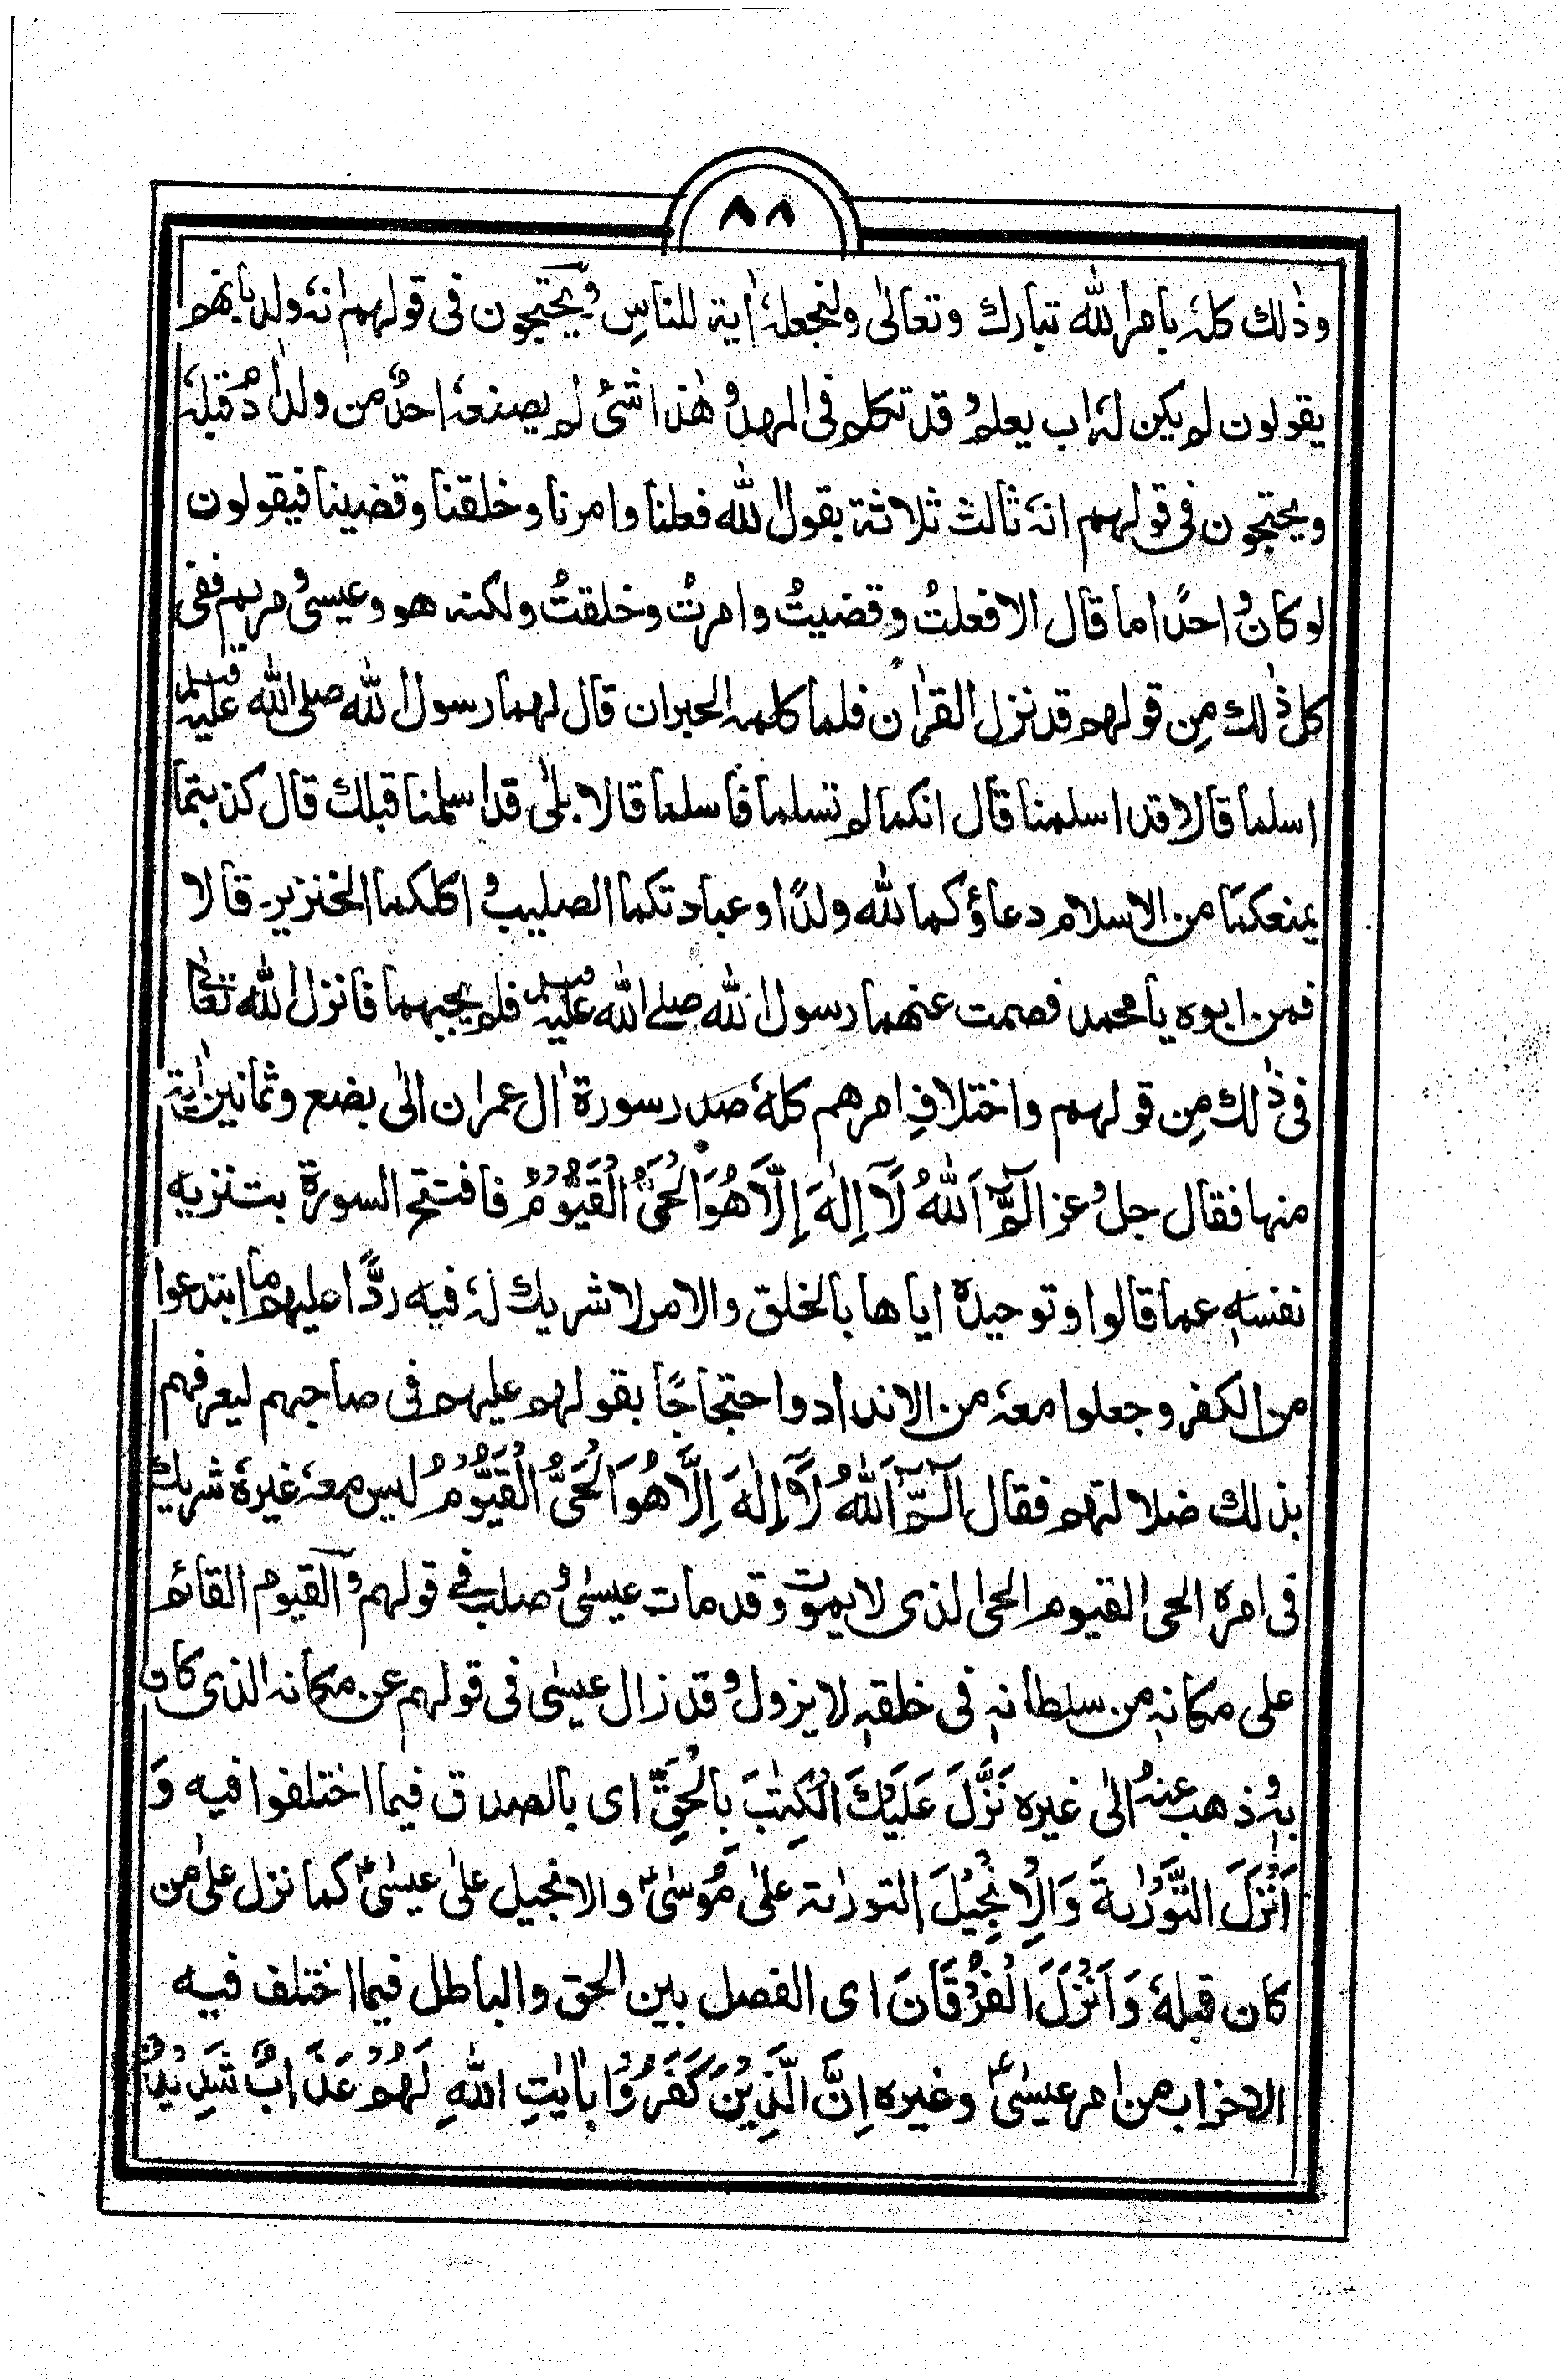 ۸۸
وذٰلك كلهٗ بامر الله تبارك وتعالٰى ولنجعلهٗ اٰية للناسِ ويحتجون فى قولهم انهٗ ولد بانهم
يقولون لم يكن لهٗ اب يعلم وقد تكلم فى المهد وهٰذا شئ لم يصنعهٗ احدٌ من ولد اٰدم قبلهٗ
ويحتجون فى قولهم انهٗ ثالث ثلاثة بقول الله فعلنا وامرنا وخلقنا وقضينا فيقولون
لو كان واحدًا ما قال الا فعلتُ وقضيتُ وامرتُ وخلقتُ ولكنه هو وعيسىٰ ومريم ففى
كل ذٰلك مِن قولهم قد نزل القراٰن فلما كلمه الحبران قال لهما رسول الله صلى الله عليه وسلم
اسلما قالا قد اسلمنا قال انكما لم تسلما فاسلما قالا بلىٰ قد اسلمنا قبلك قال كذبتما
يمنعكما من الاسلام دعاؤكما لله ولدًا وعبادتكما الصليب واكلكما الخنزير قالا
فمن ابوه يا محمد فصمت عنهما رسول الله صلى الله عليه وسلم فلم يجبهما فانزل الله تعالٰى
فى ذٰلك مِن قولهم واختلافِ امرهم كلهٗ صدر سورة اٰل عمران الٰى بضع وثمانين اٰية
منها فقال جل وعز الٓمّٓ اَللّٰهُ لَآ اِلٰهَ اِلَّا هُوَ الْحَىُّ الْقَيُّوْمُ فافتتح السورة بتنزيه
نفسهٖ عما قالوا وتوحيدهٖ اياها بالخلق والامر لا شريك لهٗ فيه ردًّا عليهم ما ابتدعوا
من الكفر وجعلوا معهٗ من الانداد واحتجاجًا بقولهم عليهم فى صاحبهم ليعرفهم
بذلك ضلالتهم فقال الٓـمّٓ اَللّٰهُ لَآ اِلٰهَ اِلَّا هُوَ الْحَىُّ الْقَيُّوْمُ ليس معهٗ غيرهٗ شريك
فى امرهٖ الحى القيوم الحى الذى لا يموت وقد مات عيسىٰ وصلب فى قولهم والقيوم القائم
على مكانهٖ من سلطانهٖ فى خلقهٖ لا يزول وقد زال عيسىٰ فى قولهم عن مكانه الذى كان
بهٖ وذهب عنهُ الٰى غيره نَزَّلَ عَلَيْكَ الْكِتٰبَ بِالْحَقِّ اى بالصدق فيما اختلفوا فيه وَ
اَنْزَلَ التَّوْرٰىةَ وَالْاِنْجِيْلَ التورٰىة علىٰ مُوسٰىؑ والانجيل علىٰ عيسٰىؑ كما نزل علىٰ من
كان قبلهٗ وَاَنْزَلَ الْفُرْقَانَ اى الفصل بين الحق والباطل فيما اختلف فيه
الاحزاب من امر عيسٰىؑ وغيره اِنَّ الَّذِيْنَ كَفَرُوْا بِاٰيٰتِ اللّٰهِ لَهُمْ عَذَابٌ شَدِيْدٌ